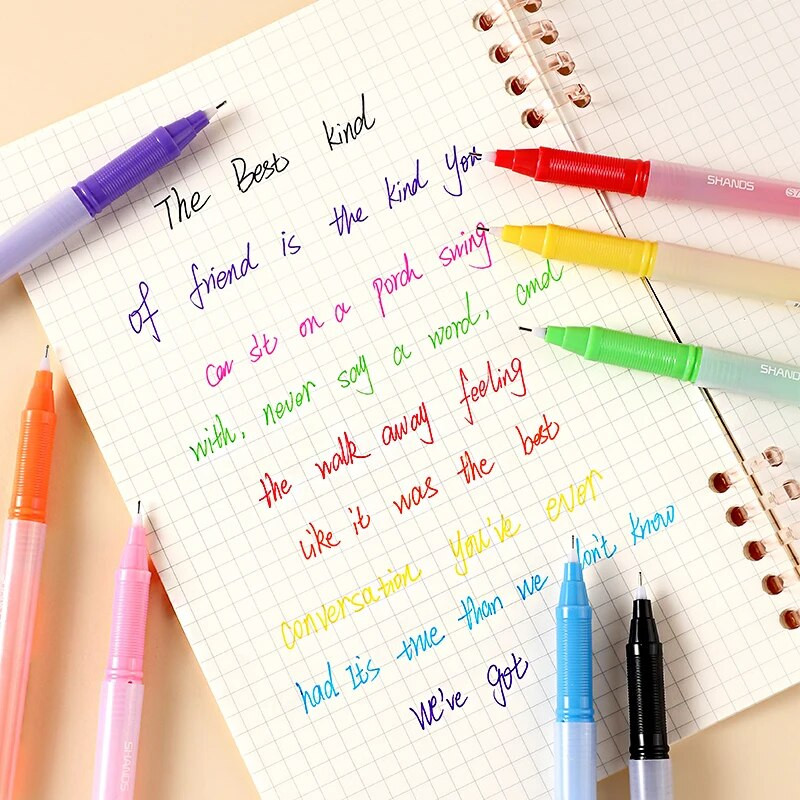 The Best kind
of friend is the kind you
can sit on a porch swing
with, never say a word, and
the walk away feeling
like it was the best
conversation you've ever
had It's true than we don't know
we've got
SHANDS
SHANDS
SHANDS